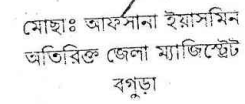 মোছাঃ আফসানা ইয়াসমিন
অতিরিক্ত জেলা ম্যাজিস্ট্রেট
বগুড়া